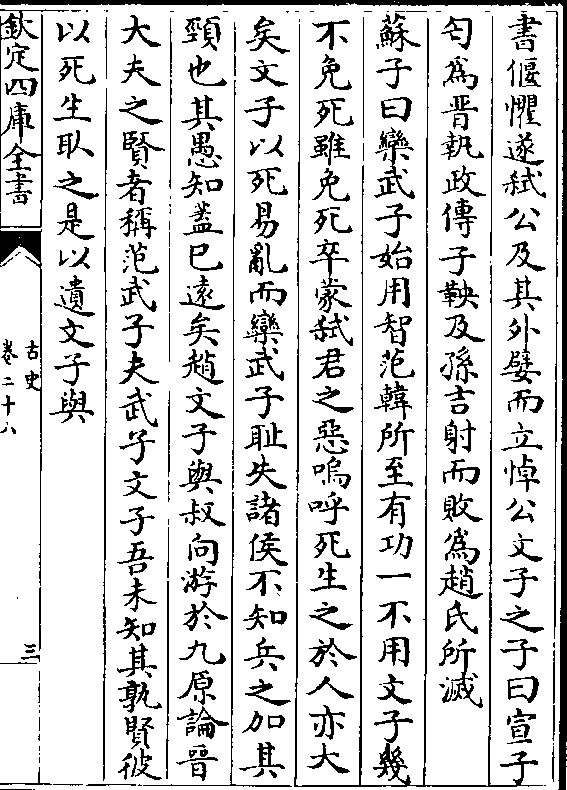 書偃懼遂弑公及其外嬖而立悼公文子之子曰宣子
匄為晋執政傳子鞅及孫吉射而敗為趙氏所滅
蘇子曰欒武子始用智范韓所至有功一不用文子幾
不免死雖免死卒蒙弑君之惡嗚呼死生之於人亦大
矣文子以死易亂而欒武子恥失諸侯不知兵之加其
頸也其愚知葢已遠矣趙文子與叔向游於九原論晋
大夫之賢者稱范武子夫武子文子吾未知其孰賢彼
以死生取之是以遺文子與
欽定四庫全書
古史
卷二十八
三